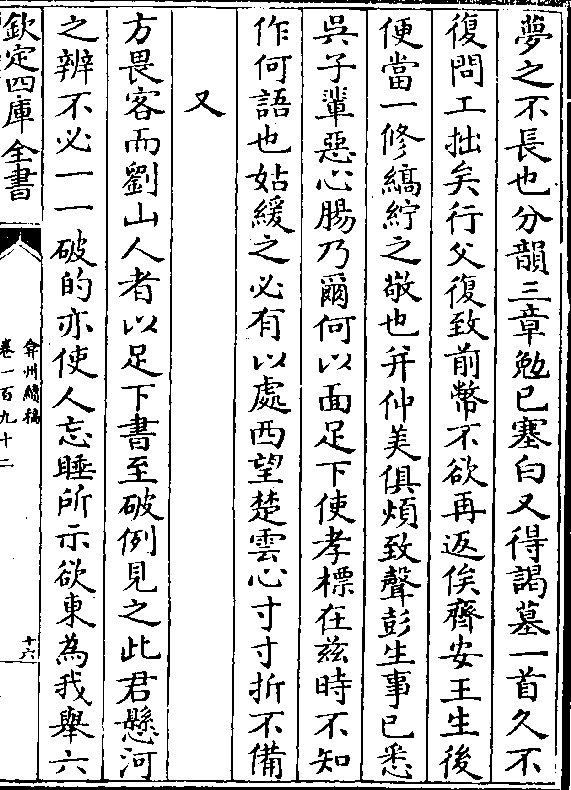 夢之不長也分韻三章勉已塞白又得謁墓一首久不
復問工拙矣行父復致前幣不欲再返俟齊安王生後
便當一修縞紵之敬也并仲美俱煩致聲彭生事已悉
吳子輩惡心腸乃爾何以面足下使孝標在兹時不知
作何語也姑緩之必有以處西望楚雲心寸寸折不備
又
方畏客而劉山人者以足下書至破例見之此君懸河
之辨不必一一破的亦使人忘睡所示欲東為我舉六
欽定四庫全書
弇州續稿
卷一百九十二
十六